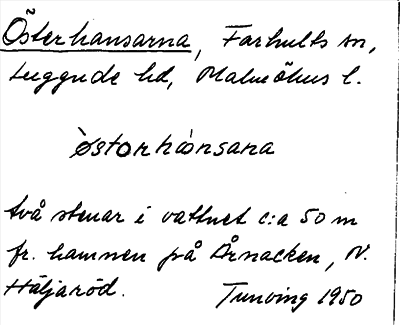 Österhansarna, Farhults sn,
Luggude hd, Malmöhus l.
östorhånsana
två stenar i vattnet c:a 50 m
fr. hamnen på Årnacken, N.
Häljaröd. Tunving 1950